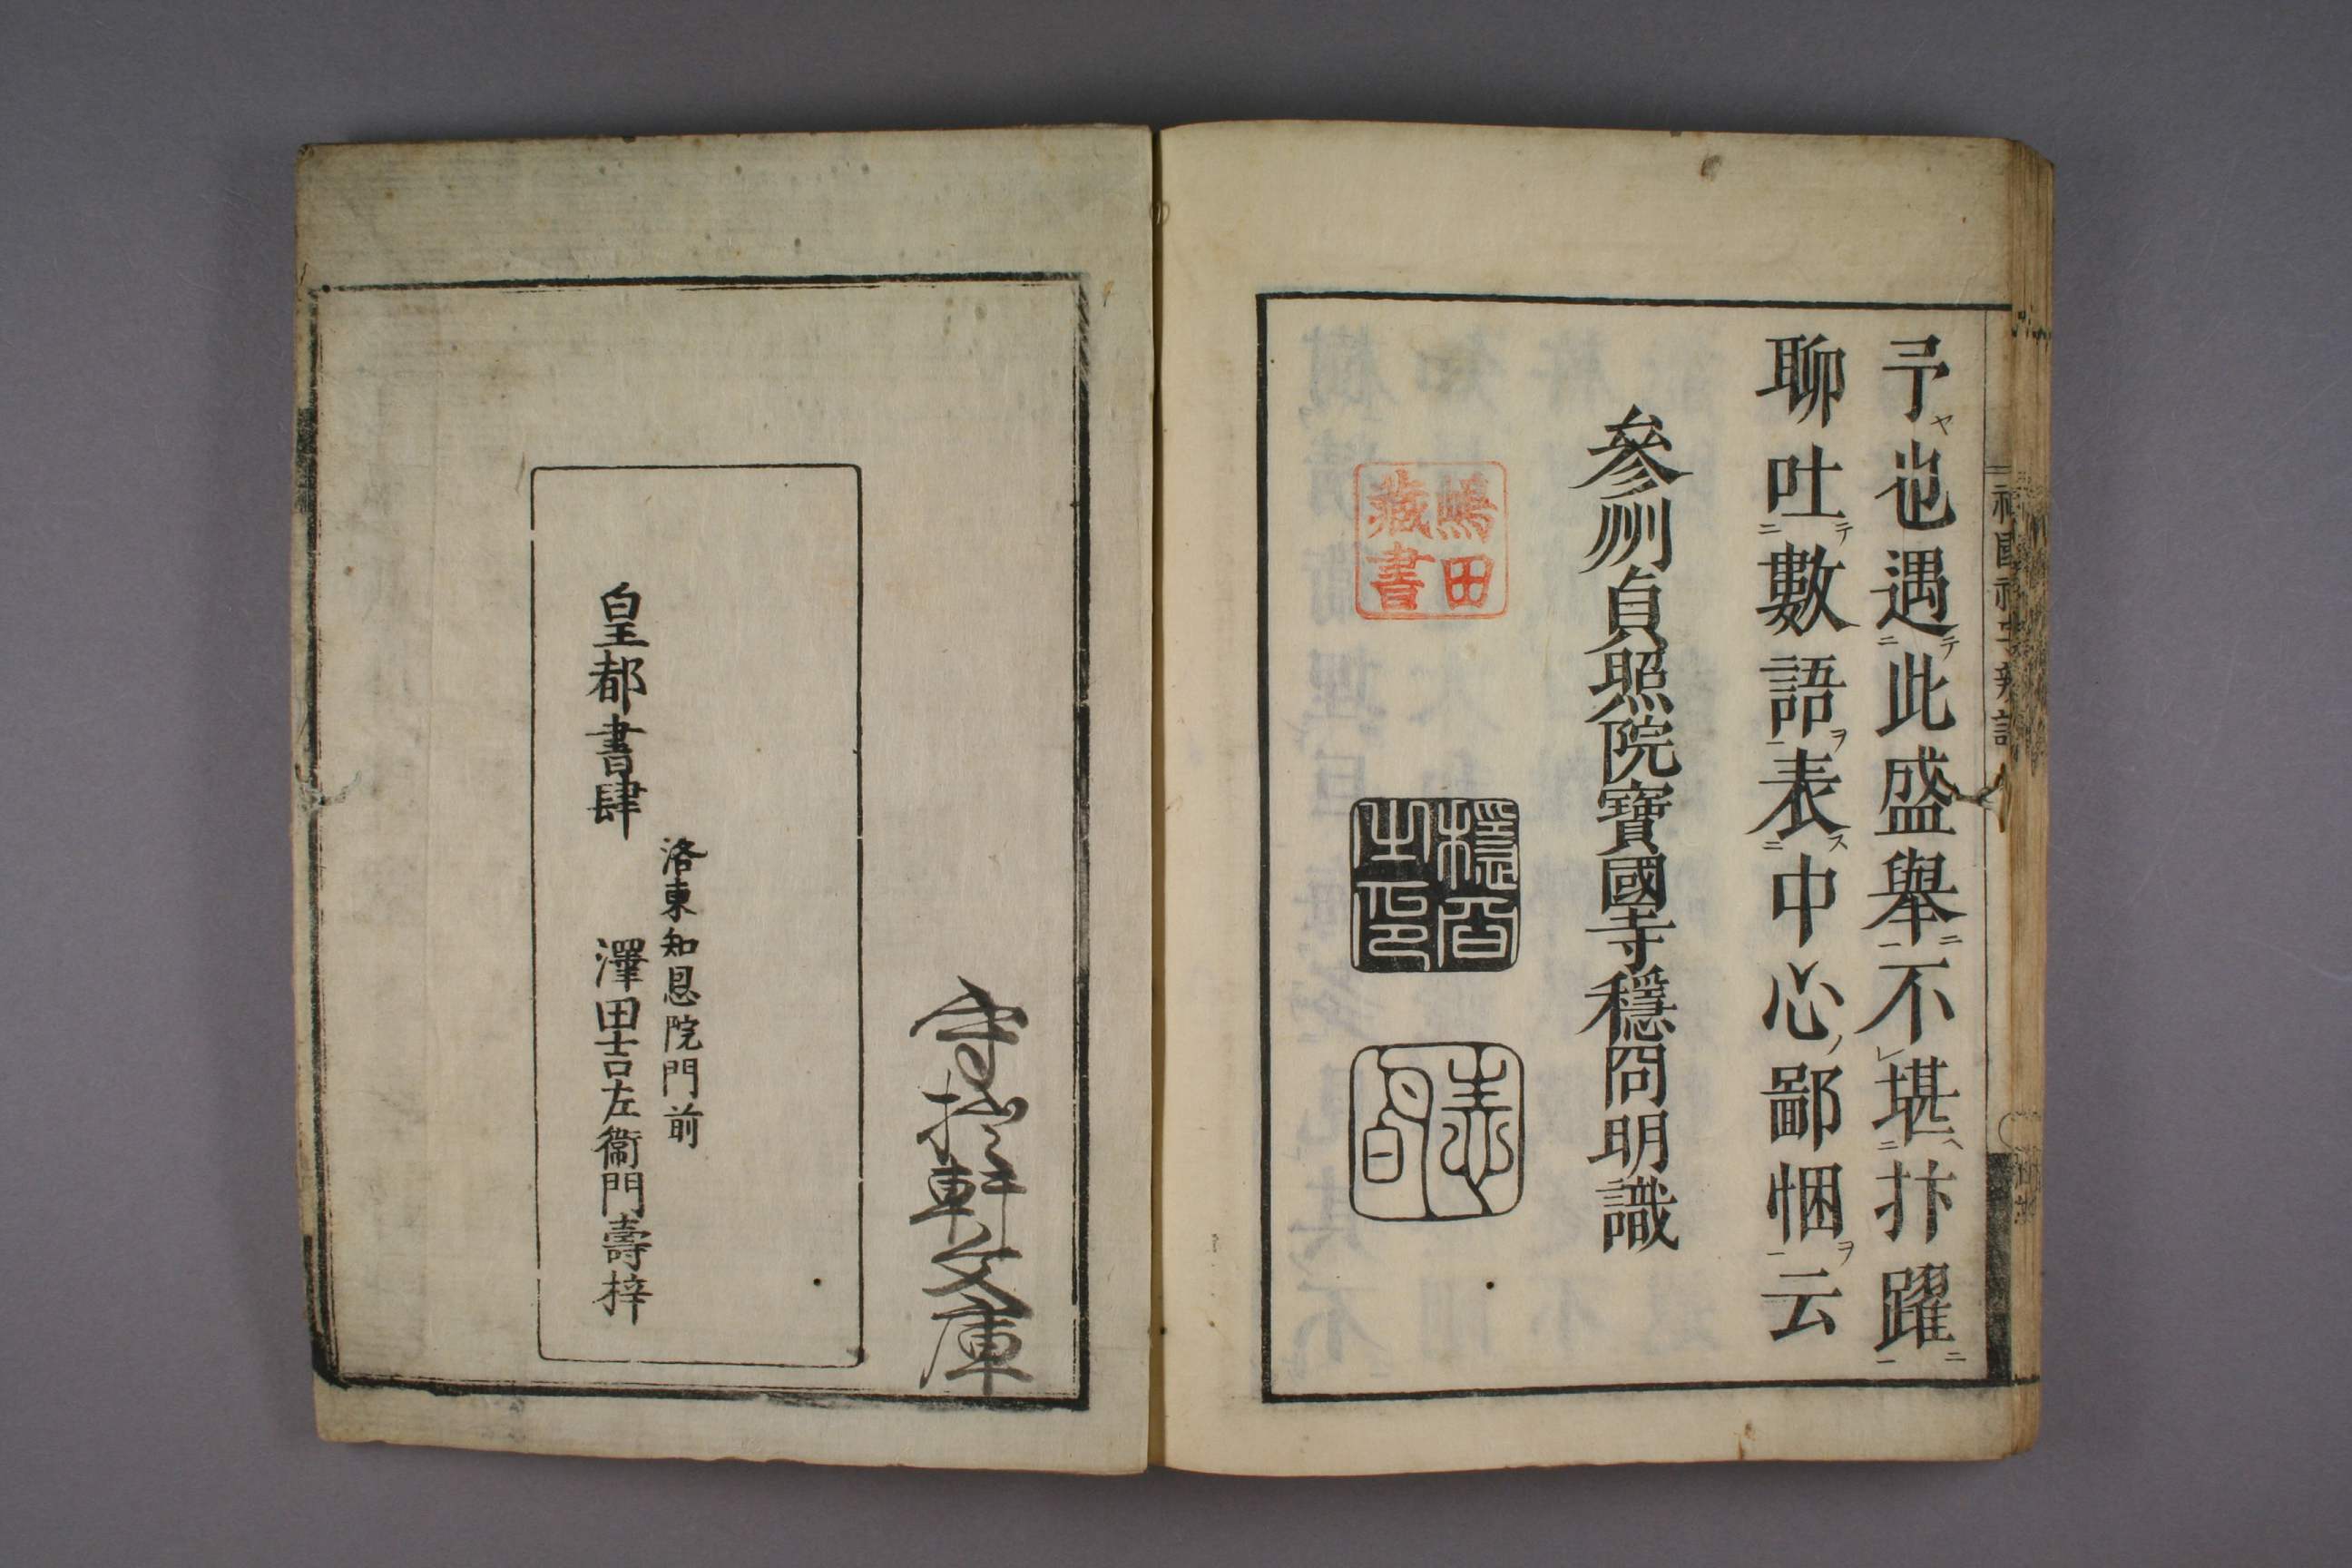 予也遇此盛舉不堪抃躍
聊吐數語表中心鄙悃云
參州貞照院寶國寺穩冏明識
嶋田
藏書
穩冏
之印
洛東知恩院門前
皇都書肆 澤田吉左衞門壽梓
軒文庫